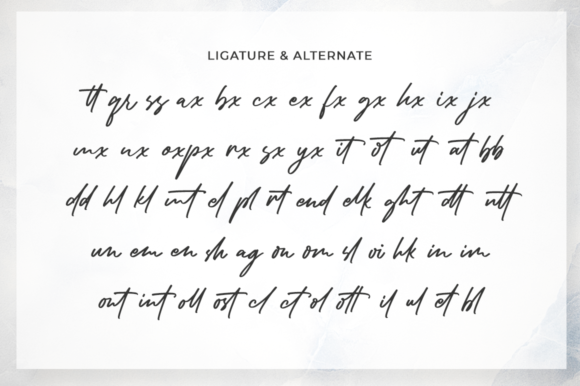 LIGATURE & ALTERNATE
tt qr ss ax bx cx ex fx gx hx ix jx
mx nx oxpx rx sx yx it ot ut at bb
dd hl kl int el pl rt end elk ght dt utt
un em en sh ag on om sl oi hk in im
out int oll ost cl ct ol ott il ul et bl